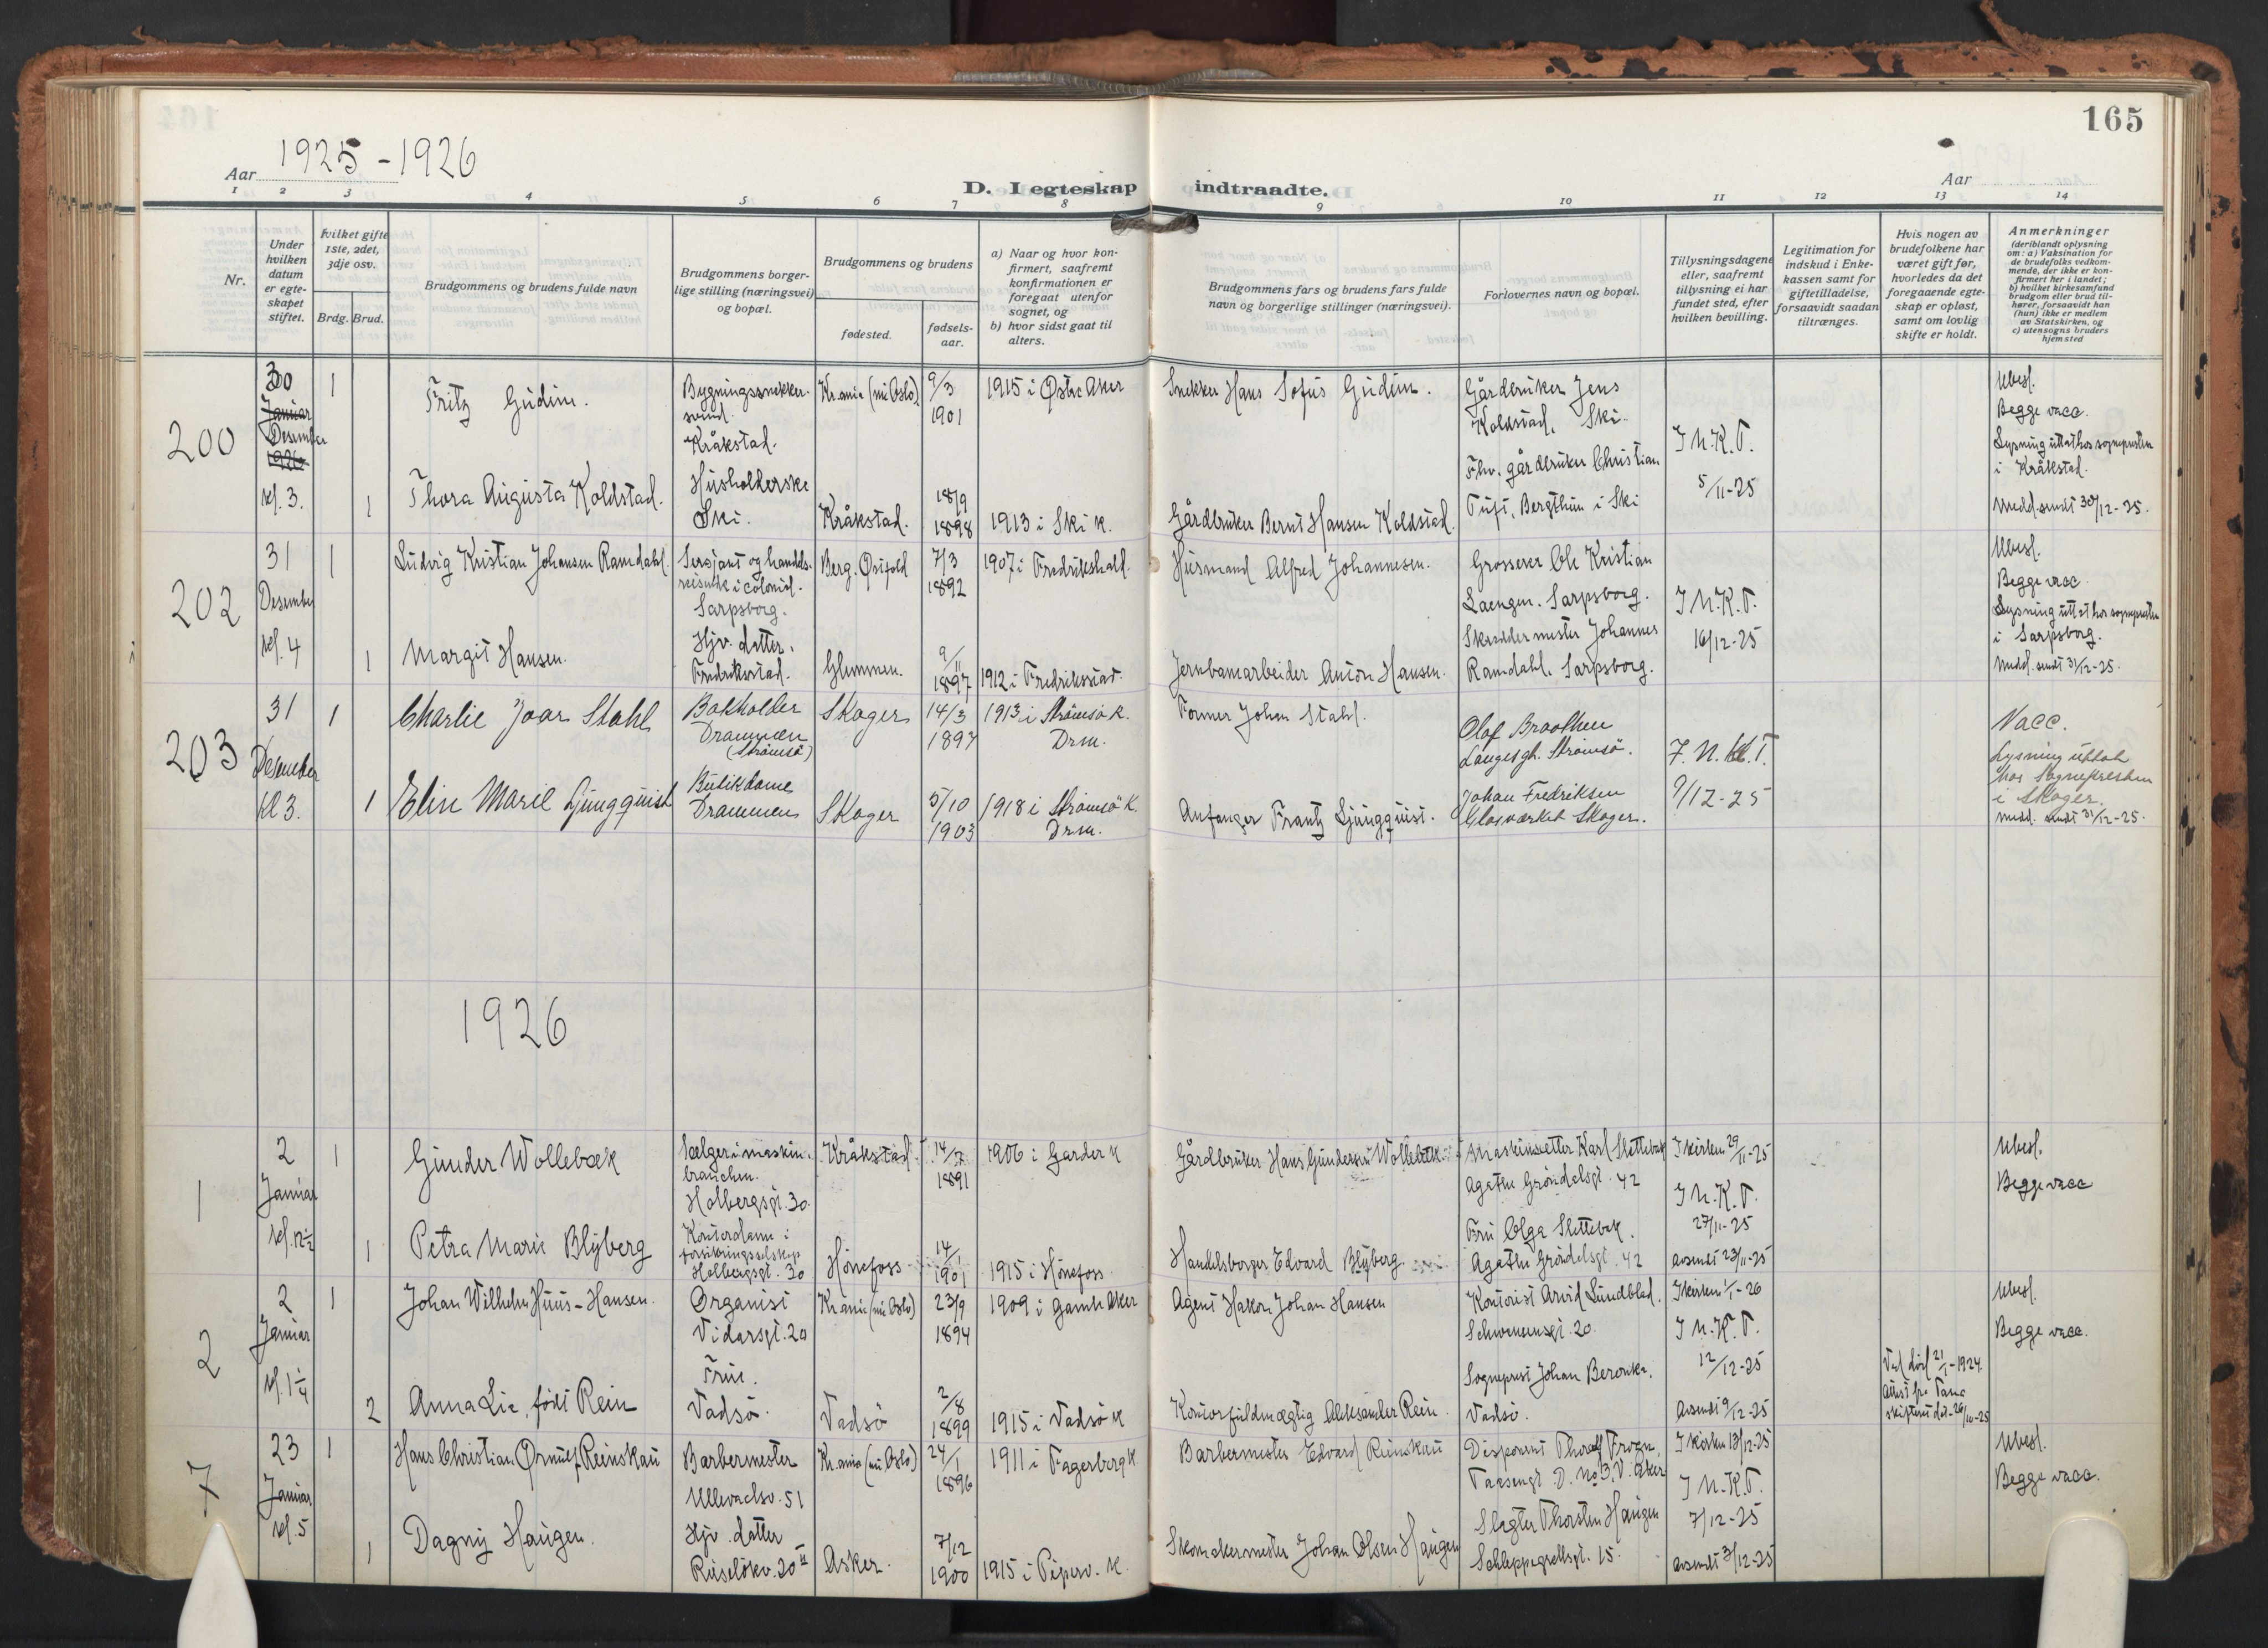 165
Aar 1925-1926
D. I egteskap indtraadte.
Aar
1 2 3 4 5 6 7 8 9 10 11 12 13 14
Nr.
Under hvilken datum er egte-skapet stiftet.
hvilket gifte 1ste, 2det, 3dje osv.
Brdg. Brud.
Brudgommens og brudens fulde navn
Brudgommens borger-lige stilling (næringsvei) og bopæl.
Brudgommens og brudens
fødested.
fødsels-aar.
a) Naar og hvor kon-firmert, saafremt konfirmationen er foregaat utenfor sognet, og
b) hvor sidst gaat til alters.
Brudgommens fars og brudens fars fulde navn og borgerlige stillinger (næringsvei).
Forlovernes navn og bopæl.
Tillysningsdagene eller, saafremt tillysning ei har fundet sted, efter hvilken bevilling.
Legitimation for indskud i Enke-kassen samt for giftetilladelse, forsaavidt saadan tiltrænges.
Hvis nogen av brudefolkene har været gift før, hvorledes da det foregaaende egte-skap er opløst, samt om lovlig skifte er holdt.
Anmerkninger
(deriblandt oplysning om: a) Vaksination for de brudefolks vedkom-mende, der ikke er kon-firmert her i landet;
b) hvilket kirkesamfund brudgom eller brud til-hører, forsaavidt han (hun) ikke er medlem av Statskirken, og
c) utensogns bruders hjemsted
200
30
Januar
Desember
1926
kl. 3.
1
Fritz Gudim.
Bygningssnekker-
svend.
Kråkstad.
Kr.ania (nu Oslo)
9/3
1901
1915 i Østre Aker
Snekker Hans Sofus Gudim.
Gårdbruker Jens
Koldstad, Ski.
1
Thora Augusta Koldstad.
Husholderske
Ski.
Kråkstad.
18/9
1898
1913 i Ski k.
Gårdbruker Bernt Hansen Koldstad.
Fhv. gårdbruker Christian
Tuft, Bergthun i Ski
I N.K.T.
5/11-25
Ubesl.
Begge vacc.
Lysning uttat hos sognepresten
i Kråkstad.
Medd. sendt 30/12-25.
202
31
Desember
kl. 4
1
Ludvig Kristian Johansen Ramdahl.
Sersjant og handels-
reisende i colonial.
Sarpsborg.
Berg. Østfold
7/3
1892
1907 i Fredrikshald.
Husmand Alfred Johannesen.
Grosserer Ole Kristian
Laengen. Sarpsborg.
1
Margit Hansen.
Hjv. datter.
Fredrikstad.
Glemmen.
9/11
1897
1912 i Fredrikstad.
Jernbanarbeider Anton Hansen.
Skreddermester Johannes
Ramdahl. Sarpsborg.
I N.K.T.
16/12-25
Ubesl.
Begge vacc.
Lysning uttat hos sognepresten
i Sarpsborg.
Medd. sendt 31/12-25.
203
31
Desember
kl 3.
1
Charlie Joar Stahl
Bokholder
Drammen
(Strømsø)
Skoger
14/3
1897
1913 i Strømsø K.
Drm.
Former Johan Stahl.
Olof Braathen
Langesgt. Strømsø.
1
Elin Marie Ljungquist
Butikdame
Drammen
Skoger
5/10
1903
1918 i Strømsø K.
Drm.
Anfanger Frantz Ljungquist.
Johan Fredriksen
Glasværket Skoger.
I. N. K. T.
9/12-25
Vacc.
Lysning uttat
hos Sognepresten
i Skoger.
medd. sendt 31/12-25.
1926
1
2
Januar
kl. 12 1/2
1
Gunder Wollebæk
Selger i maskin-
branchen.
Holbergsgt. 30.
Kråkstad.
14/7
1891
1906 i Garder k
Gårdbruker Hans Gundersen Wollebæk.
Maskinsetter Karl Slettebak
Agathe Grøndalsgt. 42
1
Petra Marie Blyberg
Kontordame i
forsikringsselskap
Holbergsgt. 30
Hønefoss
14/1
1901
1915 i Hønefoss
Handelsborger Edvard Blyberg
Fru Olga Slettebak.
Agathe Grøndalsgt. 42
I kirken 29/11-25
I N.K.T.
27/11-25
avsendt 23/11-25
Ubesl.
Begge vacc
2
2
Januar
kl. 1 1/4
1
Johan Wilhelm Huus-Hansen.
Organist
Vidarsgt. 20
Kr.ania (nu Oslo)
23/9
1894
1909 i Gamle Aker
Agent Hakon Johan Hansen
Kontorist Arvid Lundblad.
Schwenesgt. 20.
2
Anna Lie, født Rein
Frue.
Vadsø.
Vadsø
2/8
1899
1915 i Vadsø k
Kontorfuldmægtig Aleksander Rein.
Sogneprest Johan Beronka.
Vadsø.
I kirken 1/1-26
I N.K.T.
12/12-25
avsendt 9/12-25
Ved død 21/1-1924.
attest fra Tana
skifterett dat. 26/10-25
Ubesl.
Begge vacc.
7
23
Januar
kl. 5
1
Hans Christian Ørnulf Reinskau
Barbermester
Ullevaalsv. 51
Kr.ania (nu Oslo)
24/1
1896
1911 i Fagerborg k
Barbermester Edvard Reinskau
Disponent Thoralf Froen.
Taasengt D. No 3, V. Aker
1
Dagny Haugen.
Hjv. datter
Ruseløkv. 20 II
Asker.
7/12
1900
1915 i Piperv. k.
Skomakermester Johan Olsen Haugen
Slagter Thorsten Haugen
Schleppegrellsgt. 15.
I kirken 13/12-25
I N.K.T.
7/12-25
avsendt 3/12-25
Ubesl.
Begge vacc.